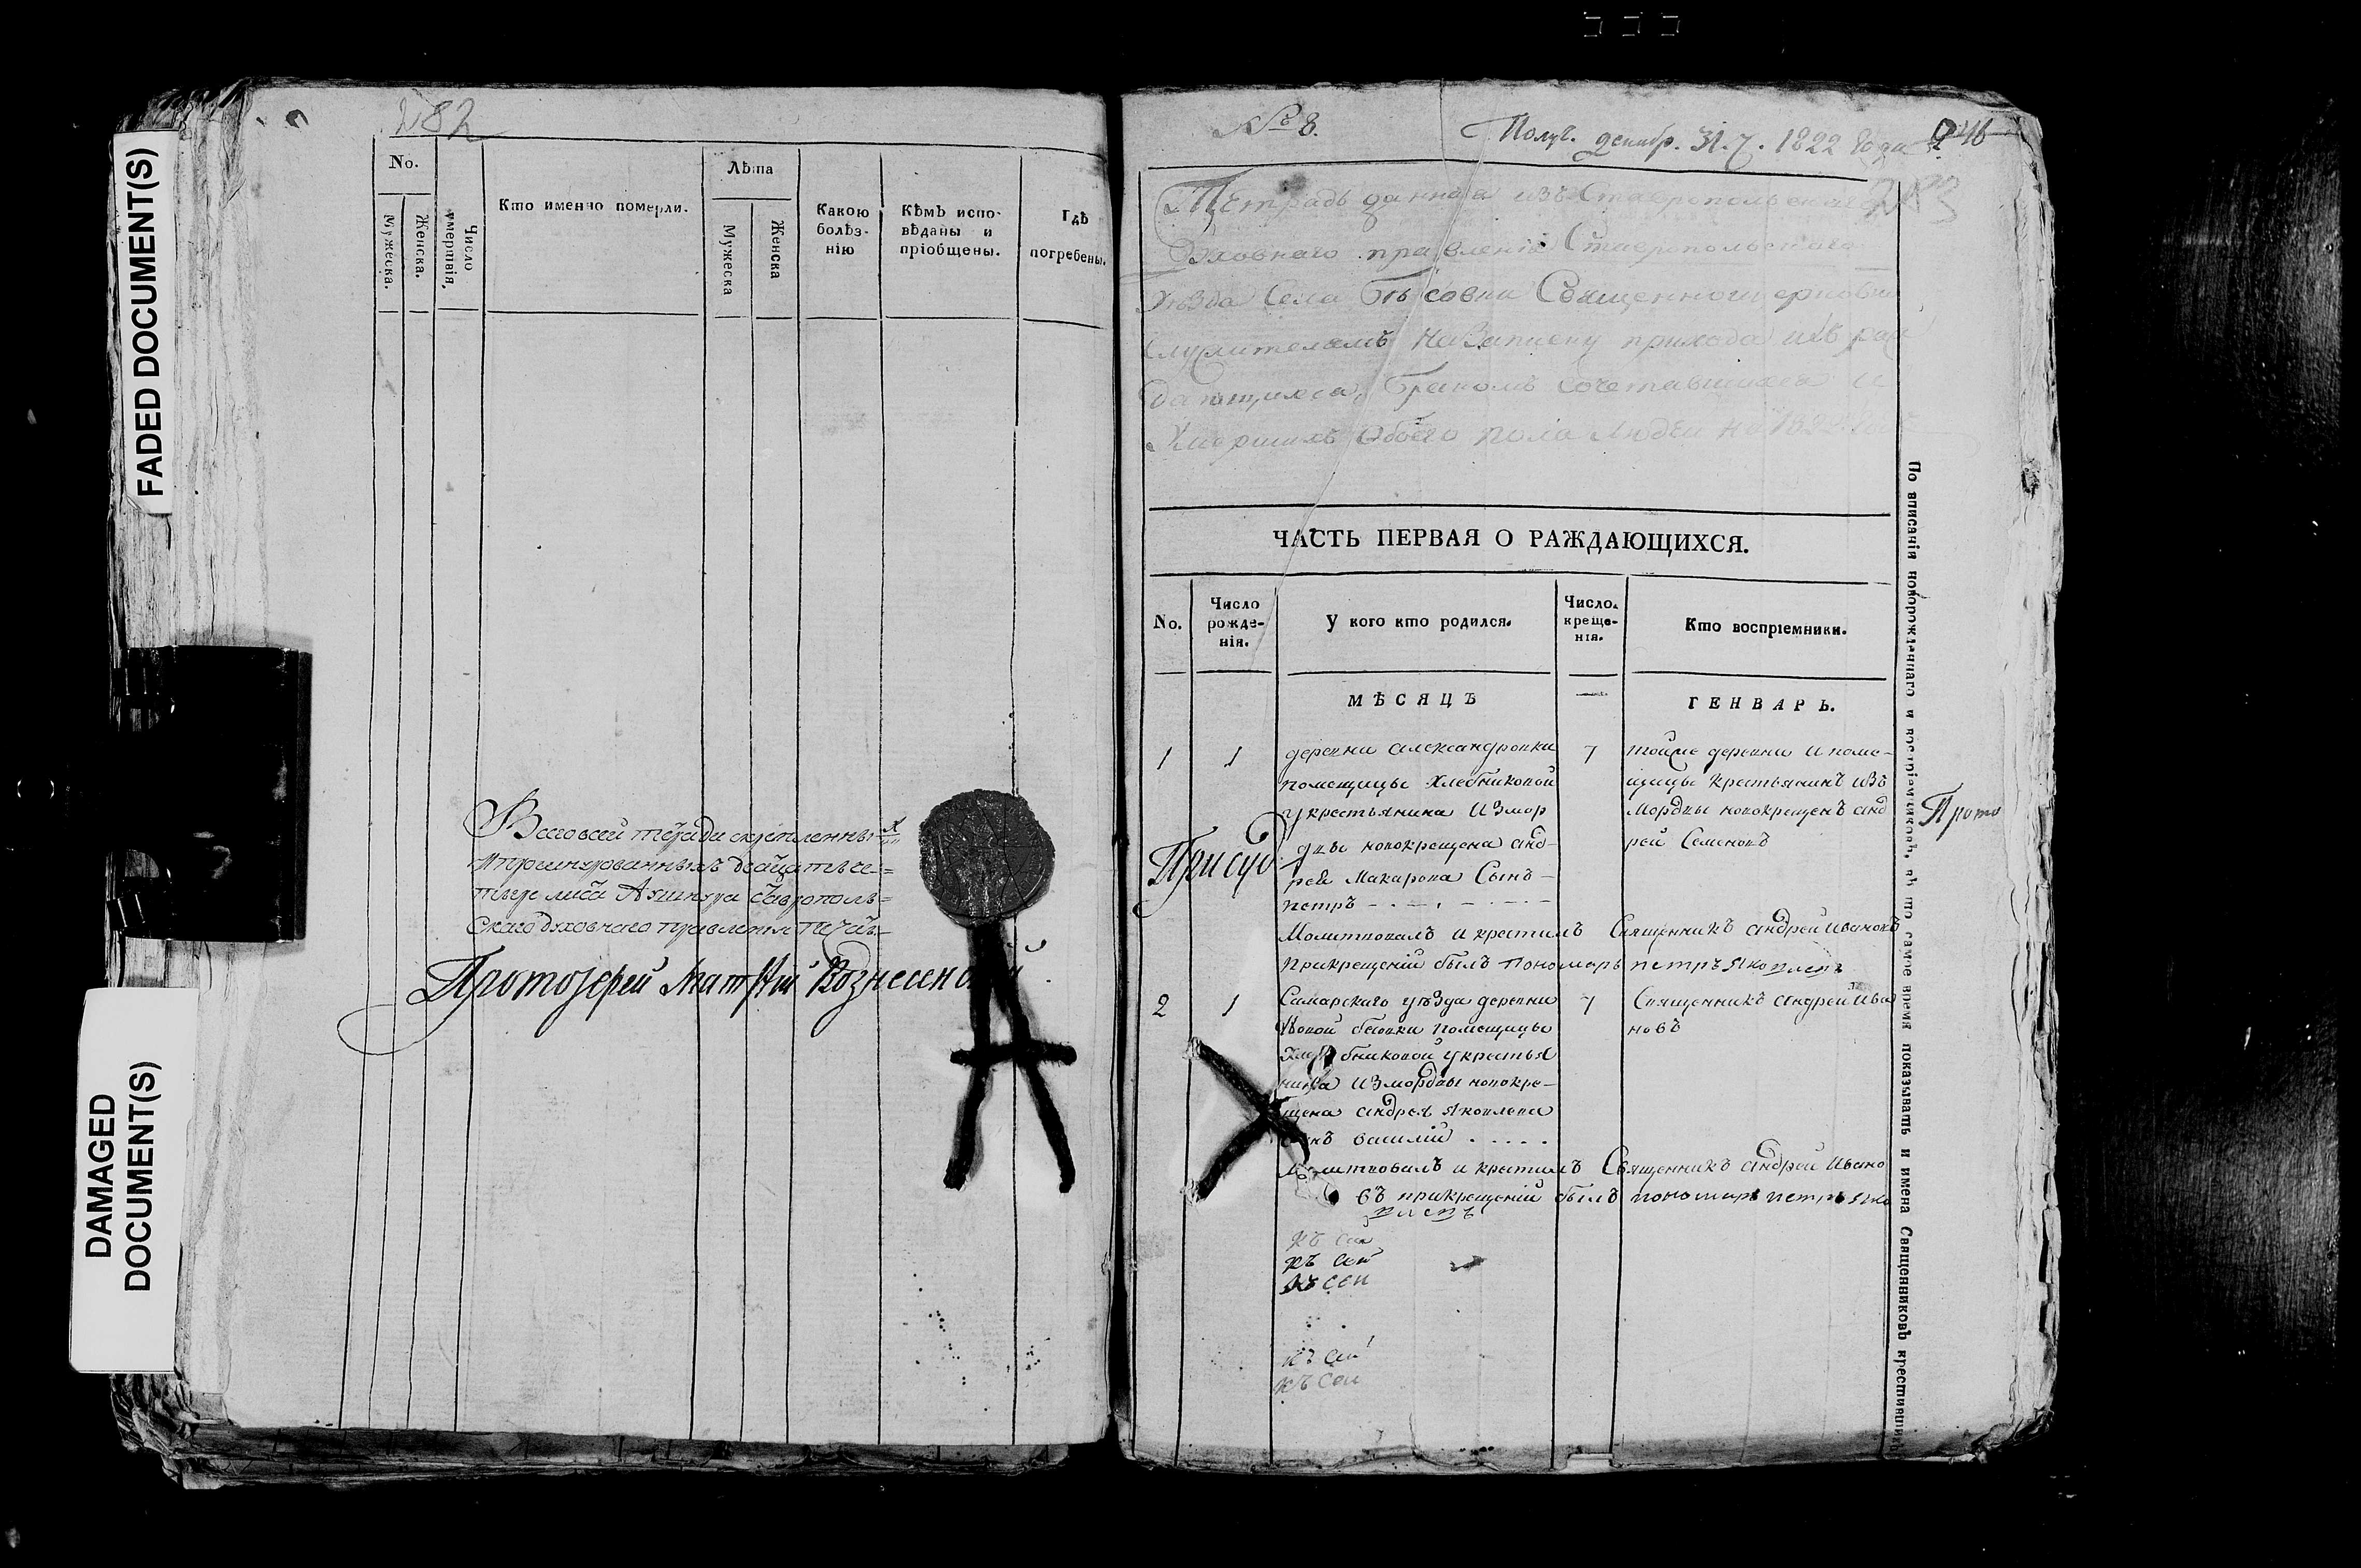 FADED DOCUMENT(S)
DAMAGED
DOCUMENT(S)
282
No.
Мужеска.
Женска.
Число
умертвія.
Кто именно померли.
Лѣта
Мужеска
Женска
Какою
болѣз-
нію
Кѣмъ испо-
вѣданы и
пріобщены.
Гдѣ
погребены.
Всего въ сей
духовнаго правленія
Протоіерей Матвѣй Вознесенскій
№ 8.
Получ. декабр. 31. 1822 года
283
Тетрадь данная изъ Ставропольскаго
Духовнаго правленія Ставропольскаго
Уѣзда Села Бѣсовки Священноцерковно
служителямъ на записку прихода ихъ раж
дающихся, бракомъ сочетавшихся и
Умершихъ обоего пола людей на 1822 годъ
ЧАСТЬ ПЕРВАЯ О РАЖДАЮЩИХСЯ.
No.
Число
рожде-
нія.
У кого кто родился.
Число
креще-
нія.
Кто воспріемники.
МѢСЯЦЪ
ГЕНВАРЬ.
1
1
деревни александровки
помещицы Хлебниковой
у крестьянина Измор
двы новокрещена анд-
рея Макарова Сынъ-
петръ
7
тойже деревни и поме-
щицы крестьянинъ изъ
Мордвы новокрещенъ анд
рей Семеновъ
Присуд
Прото
Молитвовалъ и крестилъ Священникъ андрей Ивановъ
прикрещеніи былъ Пономарь петръ Яковлевъ
2
1
Самарскаго уѣзда деревни
Новой бесовки помещицы
Хлебниковой у крестья
нина Измордвы новокре-
щена андрея яковлева
сынъ василій
7
Священникъ андрей Ива
новъ
Молитвовалъ и крестилъ Священникъ андрей Ивано
въ прикрещеніи былъ пономарь петръ яко
влевъ
къ сей
къ сей
къ сей
къ сей
къ сей
По вписаніи новорожденнаго и воспріемниковъ, въ то самое время показывать и имена Священниковъ крестившихъ